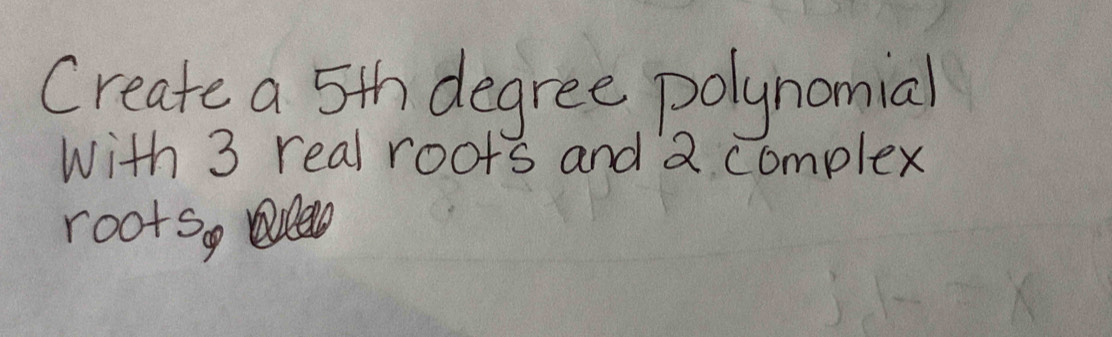 Create a 5th degree polynomial
with 3 real roots and 2 complex
roots,